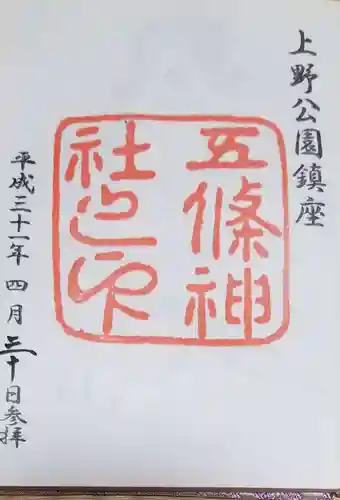 上野公園鎮座
五條神
社之印
平成三十一年四月三十日参拝